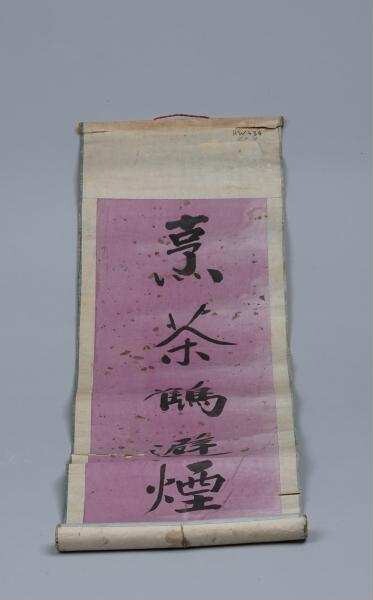 烹茶鶴避煙